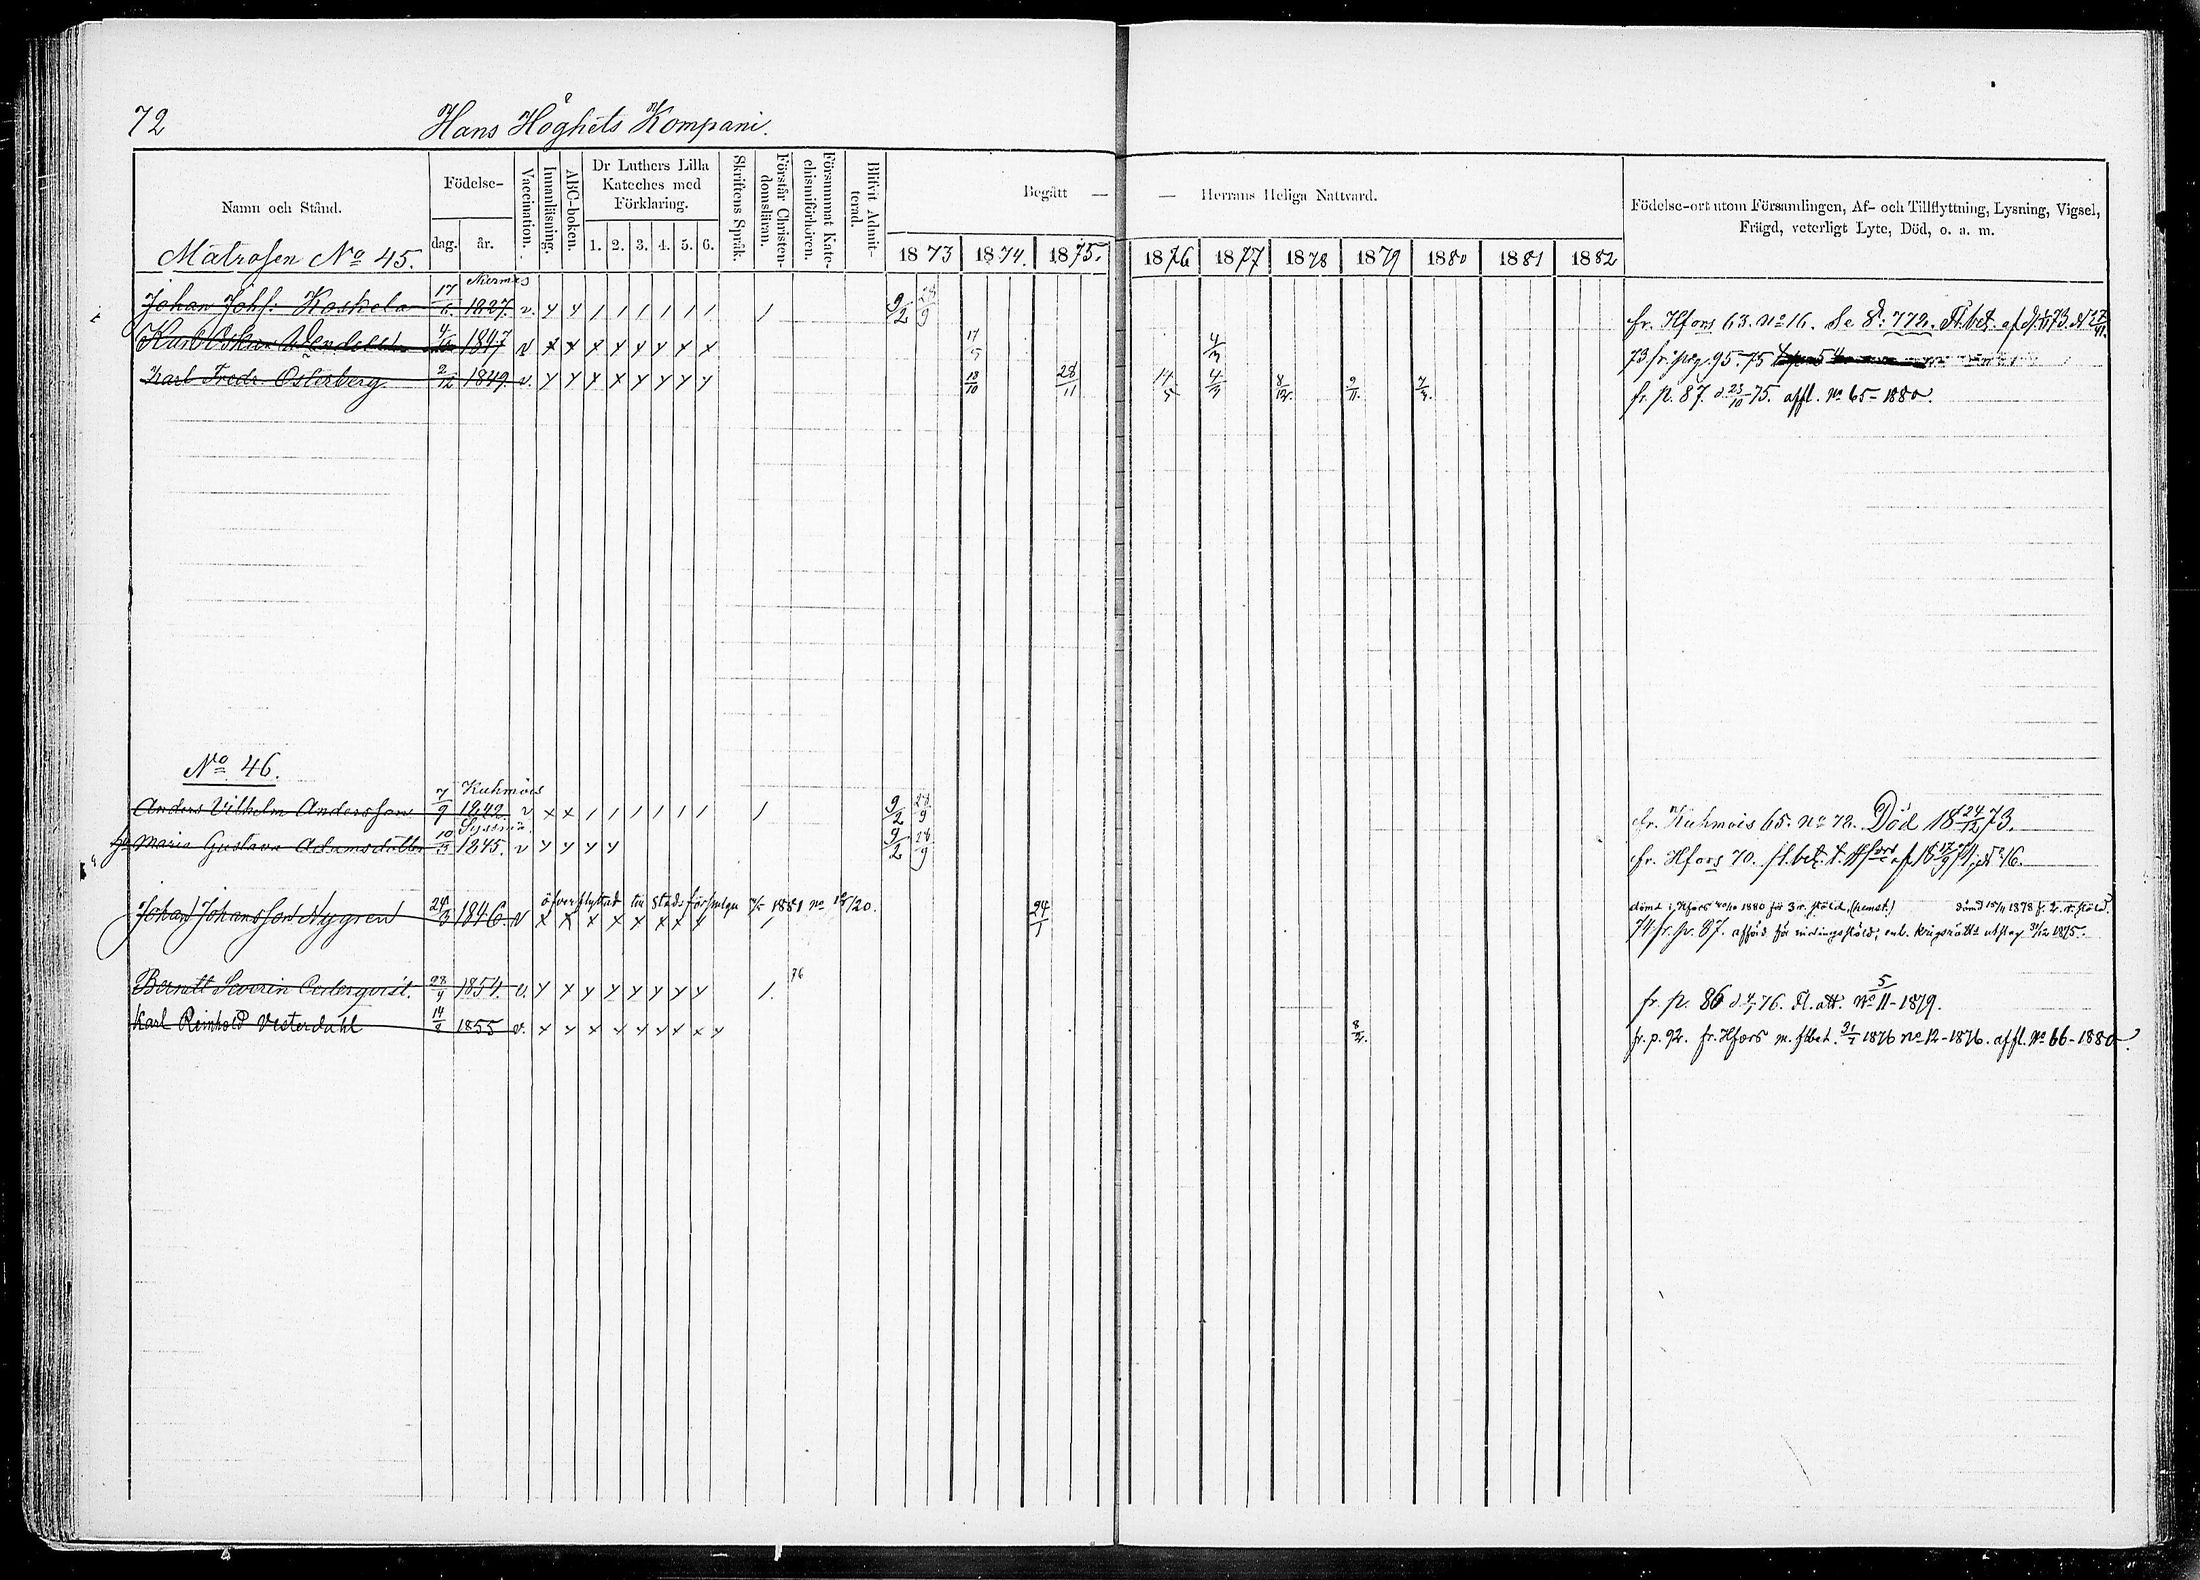 72
Hans Höghets Kompani.
Namn och Stånd.
Födelse-
dag. år.
Vaccination.
Innanläsning.
ABC-boken.
Dr Luthers Lilla
Kateches med
Förklaring.
1. 2. 3. 4. 5. 6.
Skriftens Språk.
Förstår Christen-
domsläran.
Försummat Kate-
chismiförhören.
Blifvit Admit-
terad.
Begått — — Herrans Heliga Nattvard.
1873 1874. 1875. 1876 1877 1878 1879 1880 1881 1882
Födelse-ort utom Församlingen, Af- och Tillflyttning, Lysning, Vigsel,
Frägd, veterligt Lyte, Död, o. a. m.
Matrosen No 45.
Nurmis
Johan Johs: Koskela 17/6 1827. v. 9/2 28/9 fr. Hfors 63. No 16. Se S: 772. Fl.bet. af
Karl Oskar 1847 v 17/5 4/3 73 fr. pag. 95. 75
Karl Fredr. Österberg 2/12 1849. v. 18/10 28/11 4/3 8/12. 9/11. fr. p. 87. d. 23/10 75. affl. No 65-1880.
No 46.
Kuhmois
Anders Vilhelm Andersson 7/9 1842. v 9/2 28/9 fr. Kuhmois 65. No 72. Död 18 24/12 73.
Sysmä.
Maria Gustava Adamsdotter 10/3 1845. v 9/2 28/9 fr. Hfors 70. fl.bet. t. Hfors af 18 17/9 74, No 16.
öfverflyttad 1881 no
dömd i Hfors 1880 för 3 r. stöld, (hemst.) dömd 1878 f. 2. r. stöld.
Johan Johansson Nygren 24/3 1846. v 24/1 74 fr. p. 87. afförd för enl. krigsrätts utslag 1875.
76
Berndt Severin Cederqvist. 28/4 1854. v. fr. p. 86 76. Fl. att. 5/ No 11-1879.
Karl Reinhold Vesterdahl 14/8 1855 v. 8/12. fr. p. 92. fr. Hfors m. flbet. 1876 no 12-1876. affl. No 66-1880.